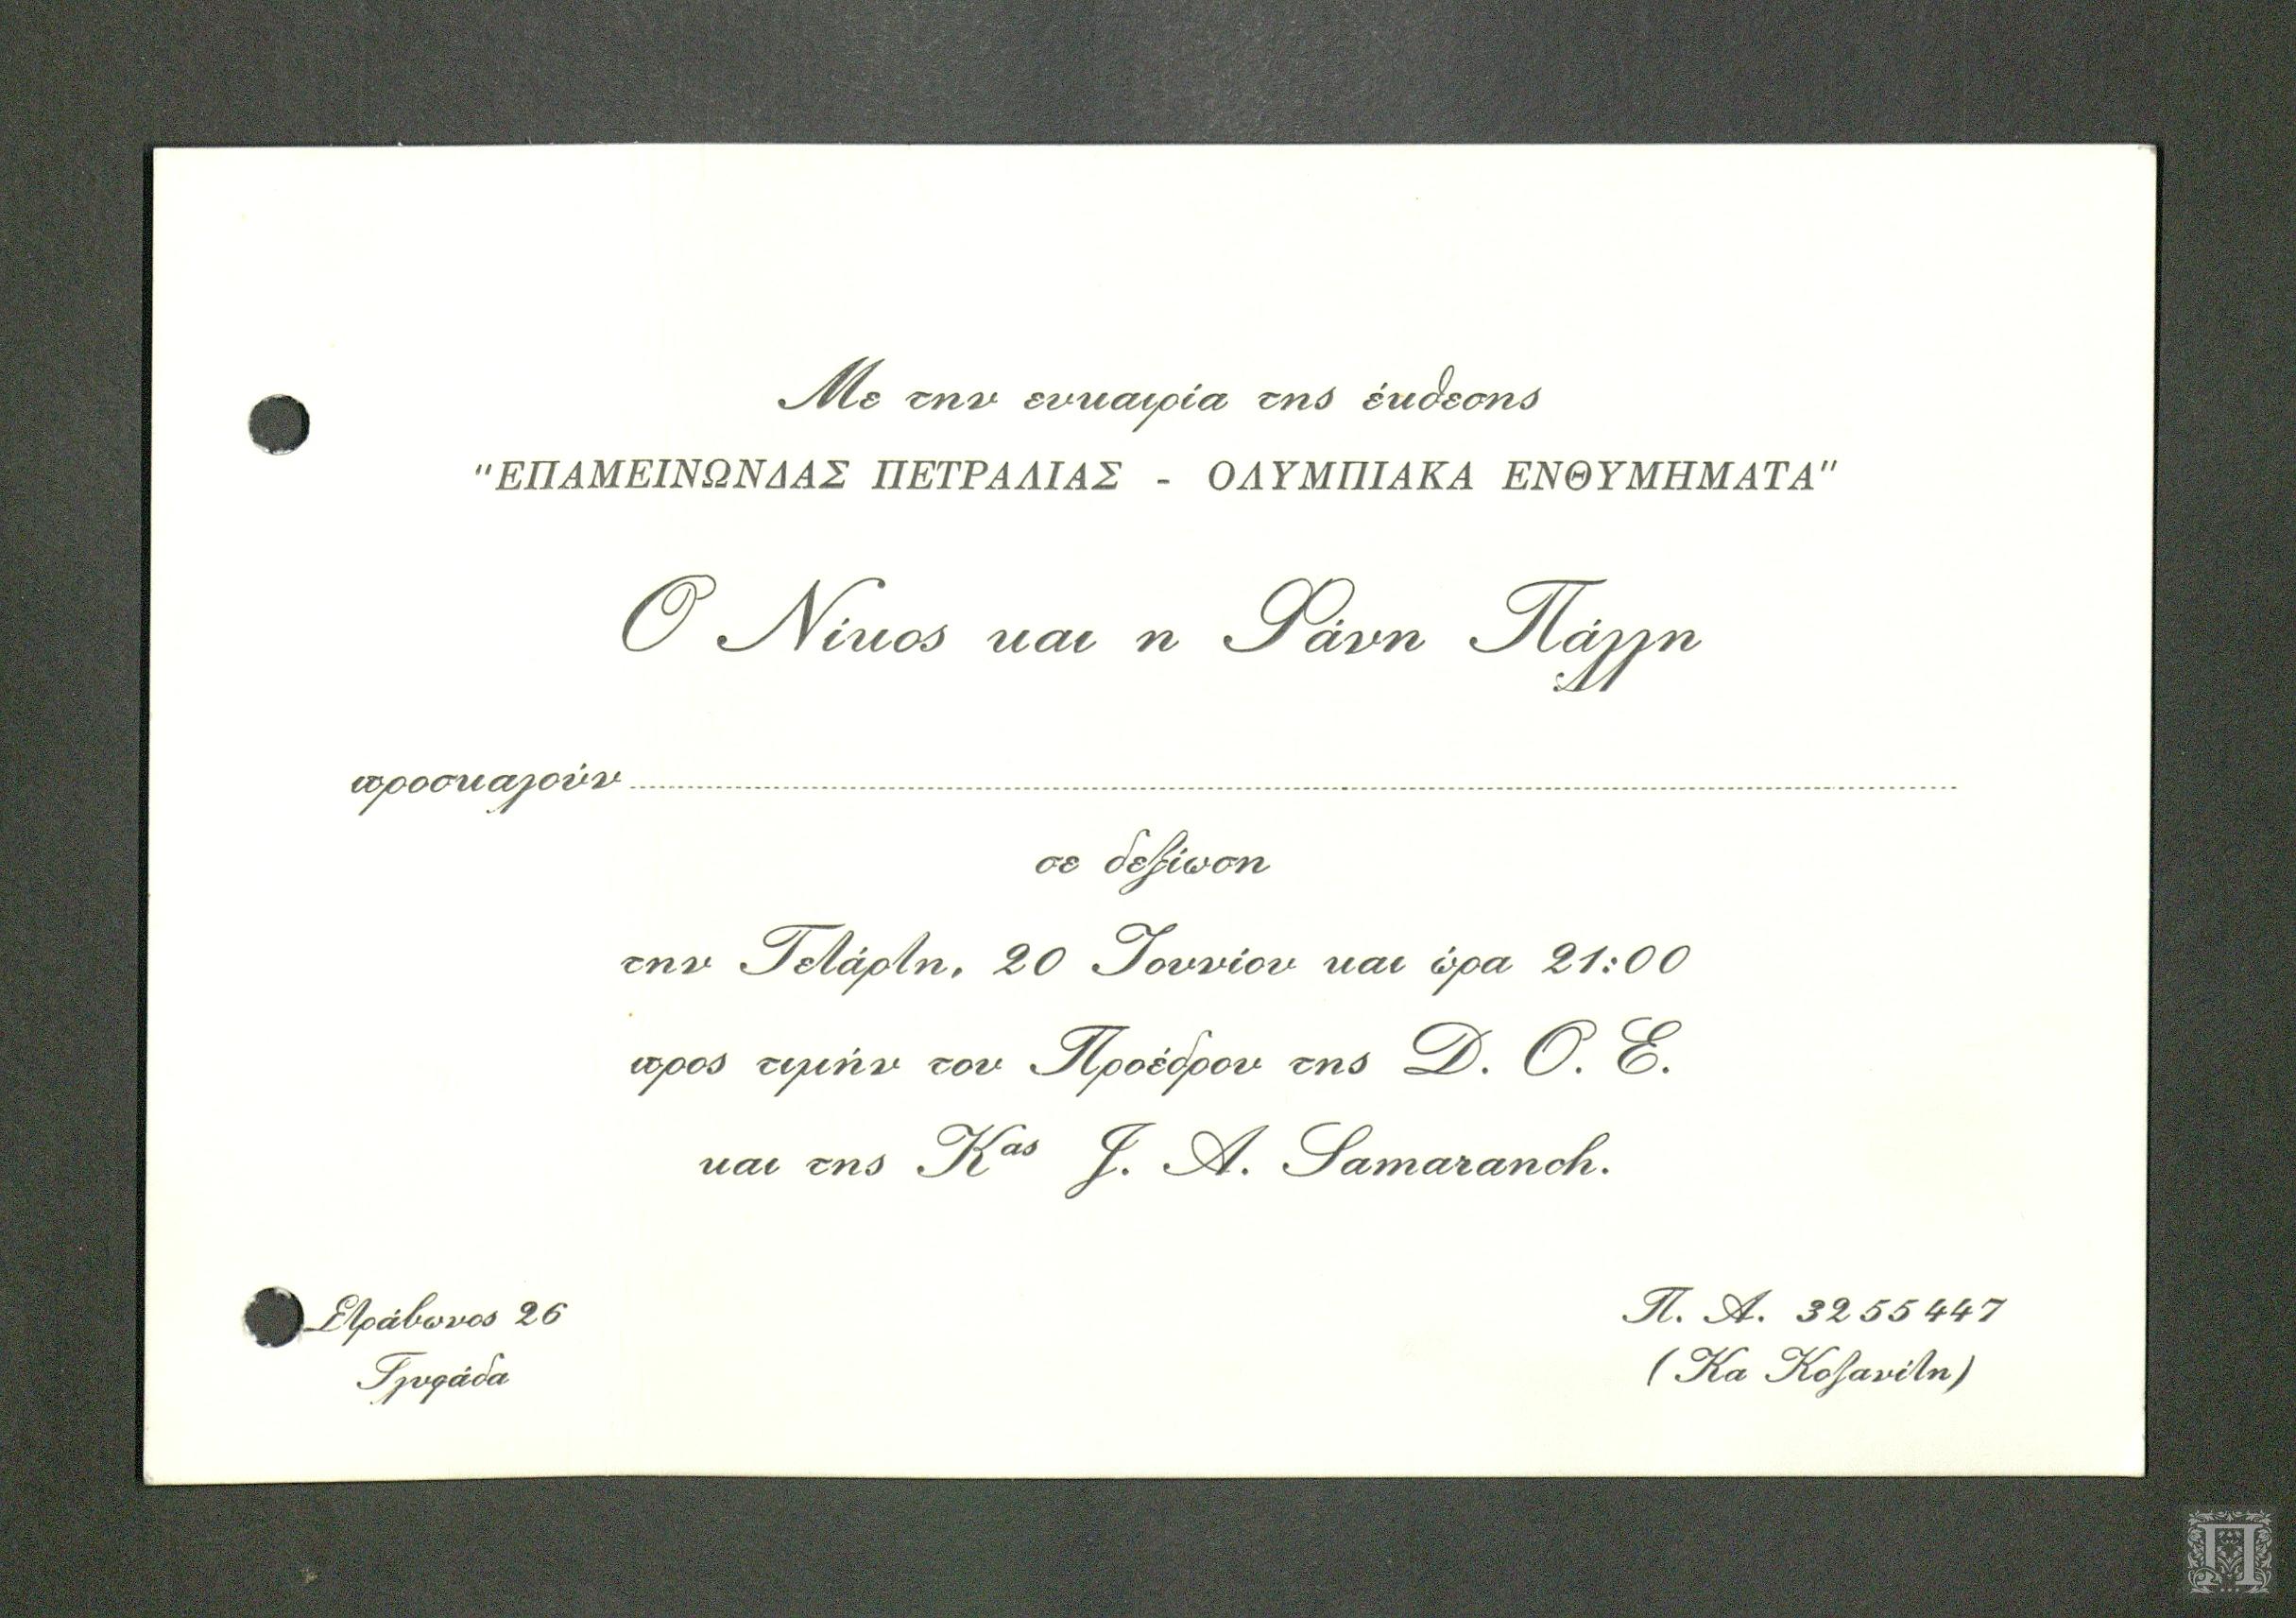 Με την ευκαιρία της έκθεσης
"ΕΠΑΜΕΙΝΩΝΔΑΣ ΠΕΤΡΑΛΙΑΣ - ΟΛΥΜΠΙΑΚΑ ΕΝΘΥΜΗΜΑΤΑ"
Ο Νίκος και η Φάνη Πάλλη
προσκαλούν
σε δεξίωση
την Τετάρτη, 20 Ιουνίου και ώρα 21:00
προς τιμήν του Προέδρου της Δ. Ο. Ε.
και της Κας J. A. Samaranch.
Στράβωνος 26
Γλυφάδα
Π. Α. 3255447
(Κα Κοζανίτη)